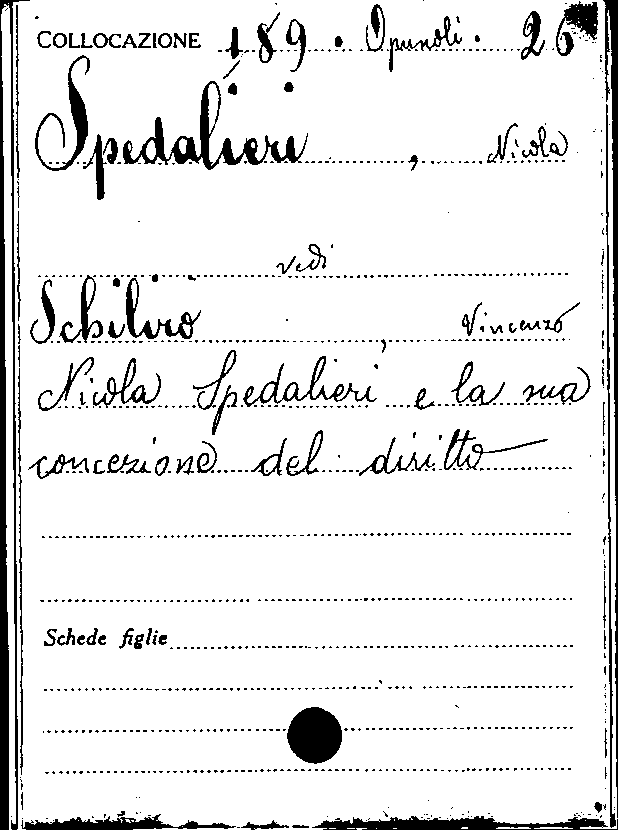 COLLOCAZIONE 189. Opuscoli. 26
Spedalieri, Nicola
vedi
Schilirò, Vincenzo
Nicola Spedalieri e la sua
concezione del diritto
Schede figlie